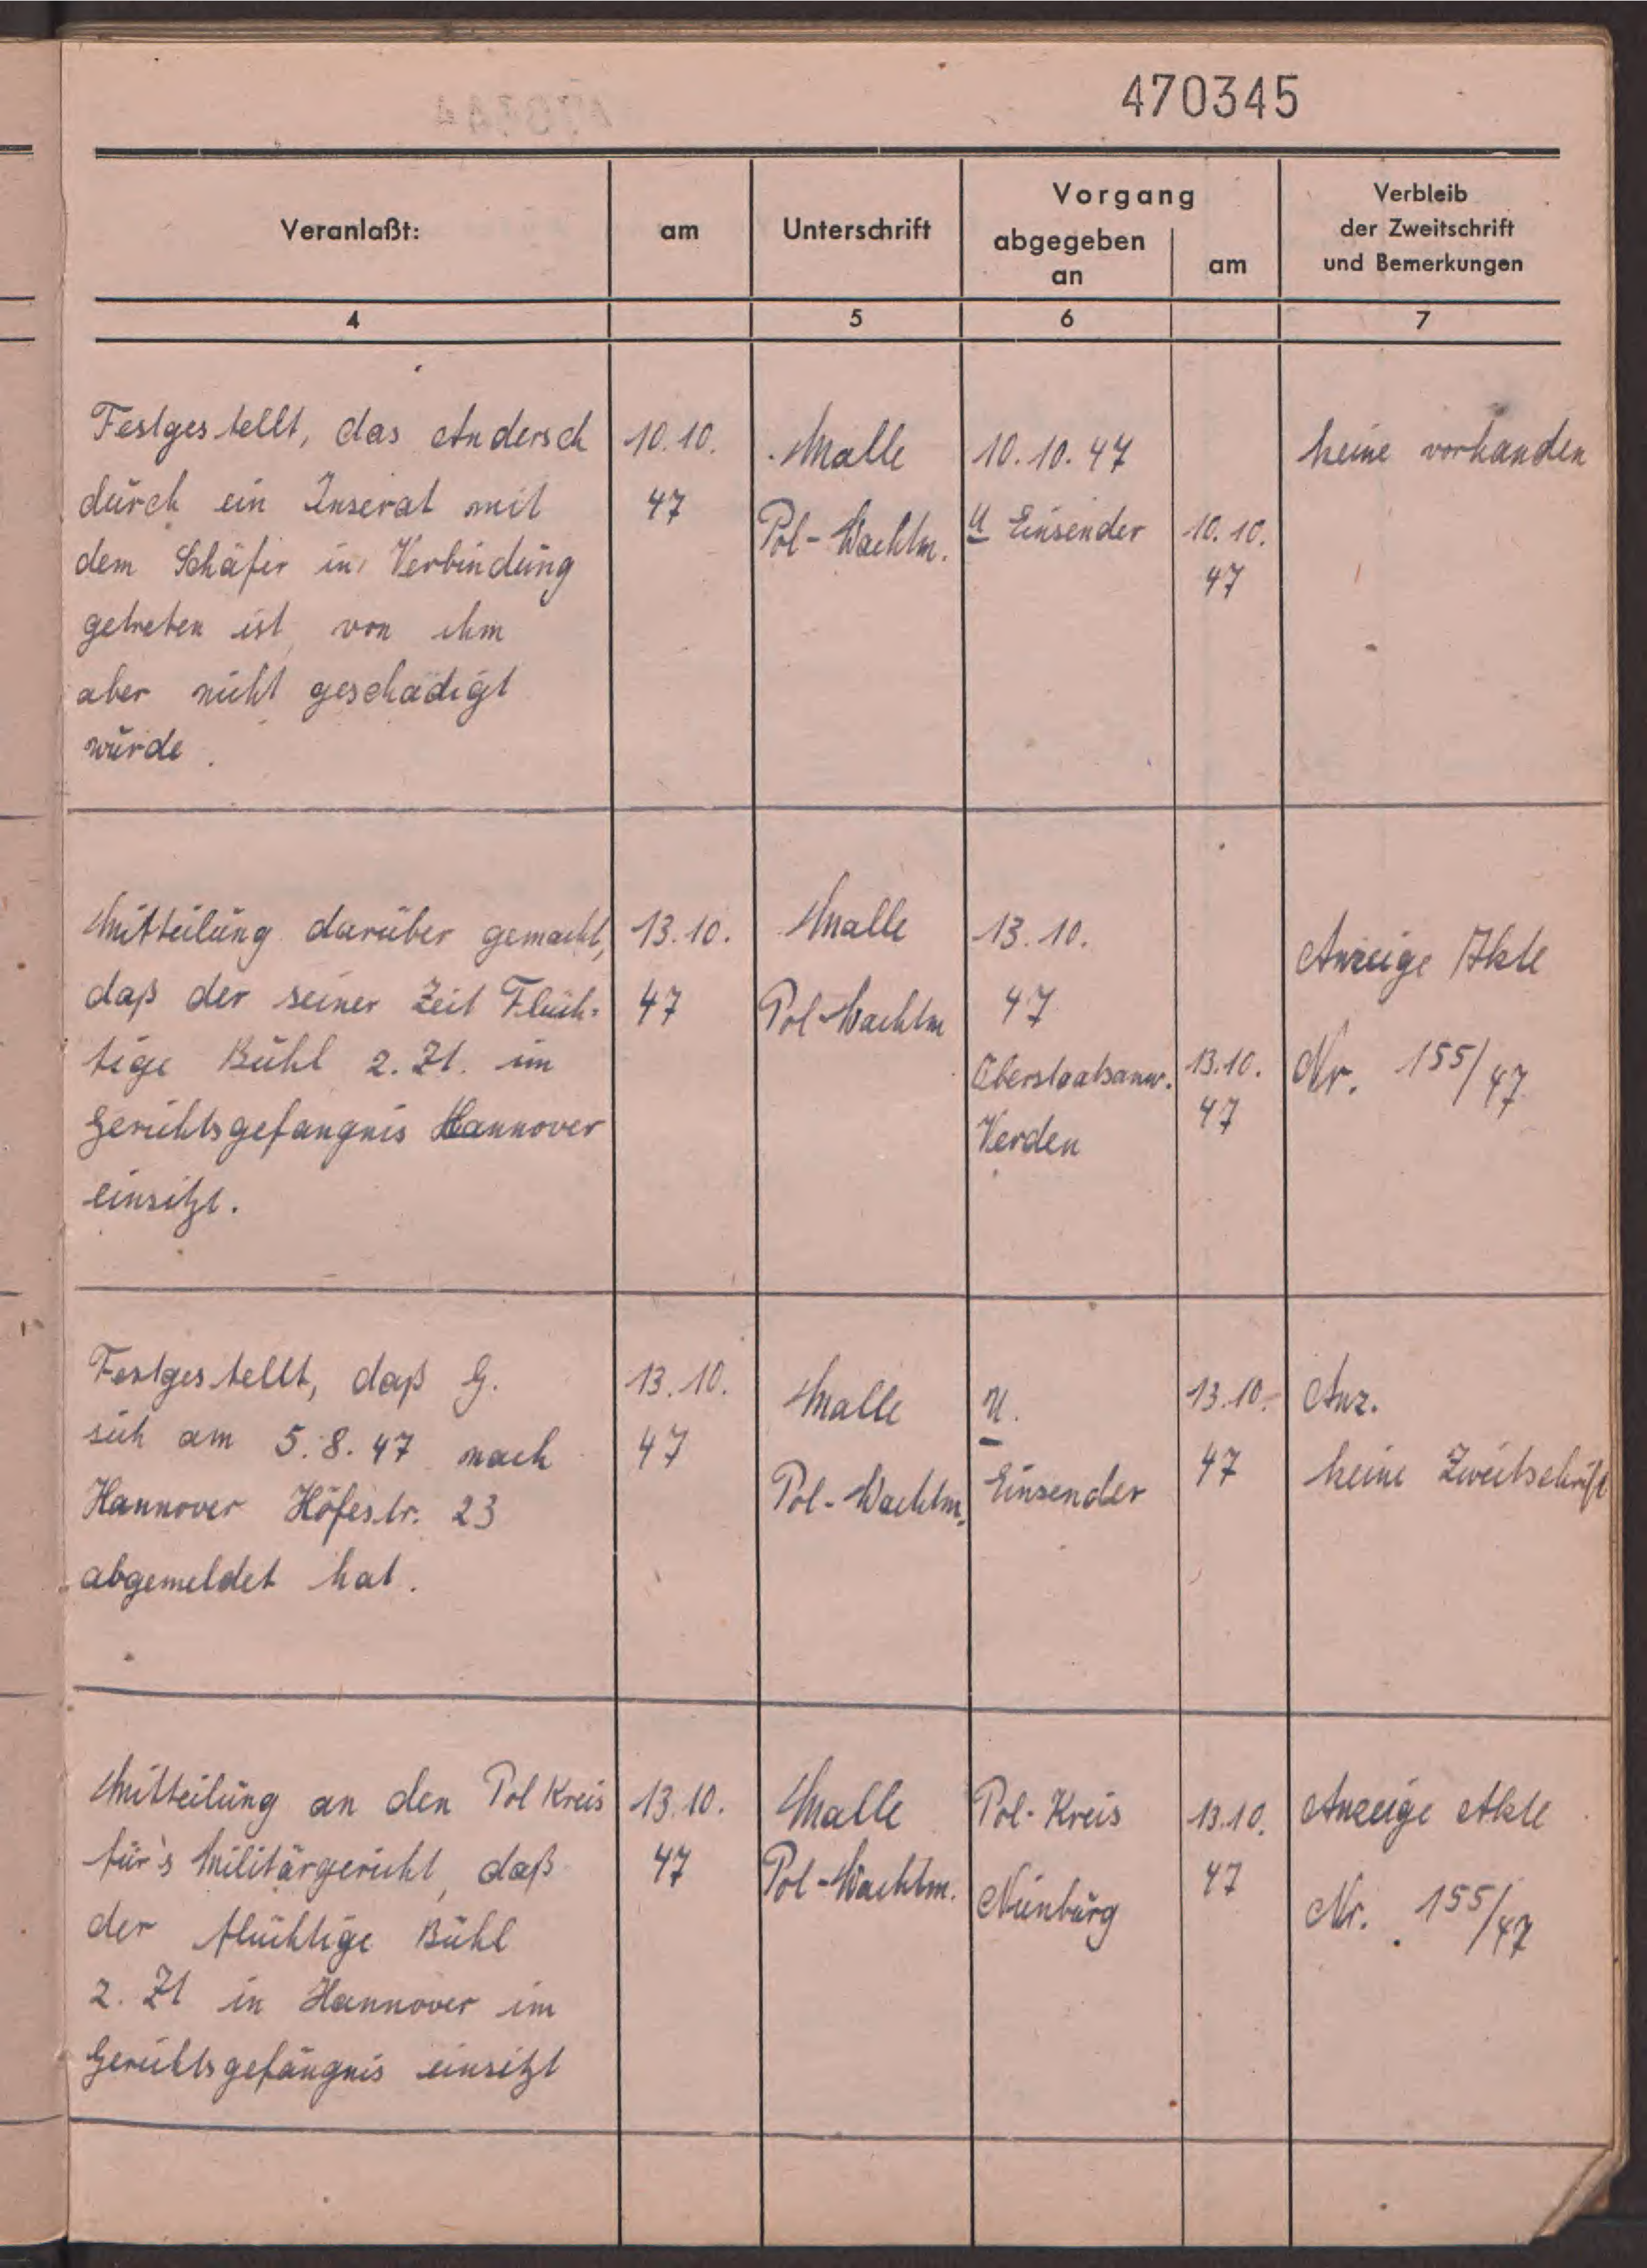 470345
Veranlaßt:
am
Unterschrift
Vorgang
abgegeben
an
am
Verbleib
der Zweitschrift
und Bemerkungen
4
5
6
7
Festgestellt, das Andersch
durch ein Inserat mit
dem Schäfer in Verbindung
getreten ist, von ihm
aber nicht geschädigt
wurde.
10.10.
47
Malle
Pol-Wachtm.
10.10.47
U Einsender
10.10.
47
keine vorhanden
Mitteilung darüber gemacht,
daß der seiner Zeit Flüch=
tige Bühl z. Zt. im
Gerichtsgefangnis Hannover
einsitzt.
13.10.
47
Malle
Pol-Wachtm
13.10.
47
Oberstaatsanw.
Verden
13.10.
47
Anzeige Akte
Nr. 155/47
Festgestellt, daß G.
sich am 5.8.47 nach
Hannover Höfestr. 23
abgemeldet hat.
13.10.
47
Malle
Pol-Wachtm.
U.
Einsender
13.10.
47
Anz.
keine Zweitschrift
Mitteilung an den Pol Kreis
für's Militärgericht, daß
der flüchtige Bühl
z. Zt in Hannover im
Gerichtsgefängnis einsitzt
13.10.
47
Malle
Pol-Wachtm.
Pol-Kreis
Nienburg
13.10.
47
Anzeige Akte
Nr. 155/47